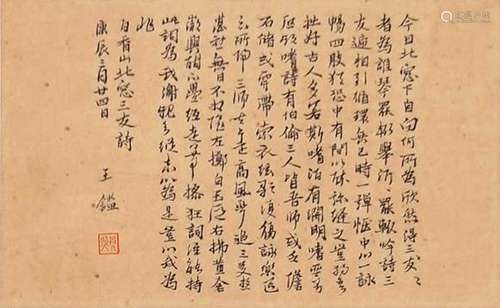 今日北窓下自問何所為欣然得三友〻
者為誰琴罷輒舉酒〻罷輒吟詩三
友遞相引循環無已時一彈愜中心一詠
暢四肢猶恐中有間以弥縫之豈獨吾
拙好古人多若斯嗜詩有淵明嗜琴有
啟期嗜詩有伯倫三人皆吾師或乏儋
石儲或穿帶索衣弦歌復觴詠樂道
知所歸三師去已遠高風不可追三友游
甚熟無日不相隨左擲白玉卮右拂黄金
徽興酣不疊紙走筆操狂詞誰能持
此詞為我謝親知縱未以為是豈以我為
非
白香山北窓三友詩
庚辰三月廿四日
王鑑